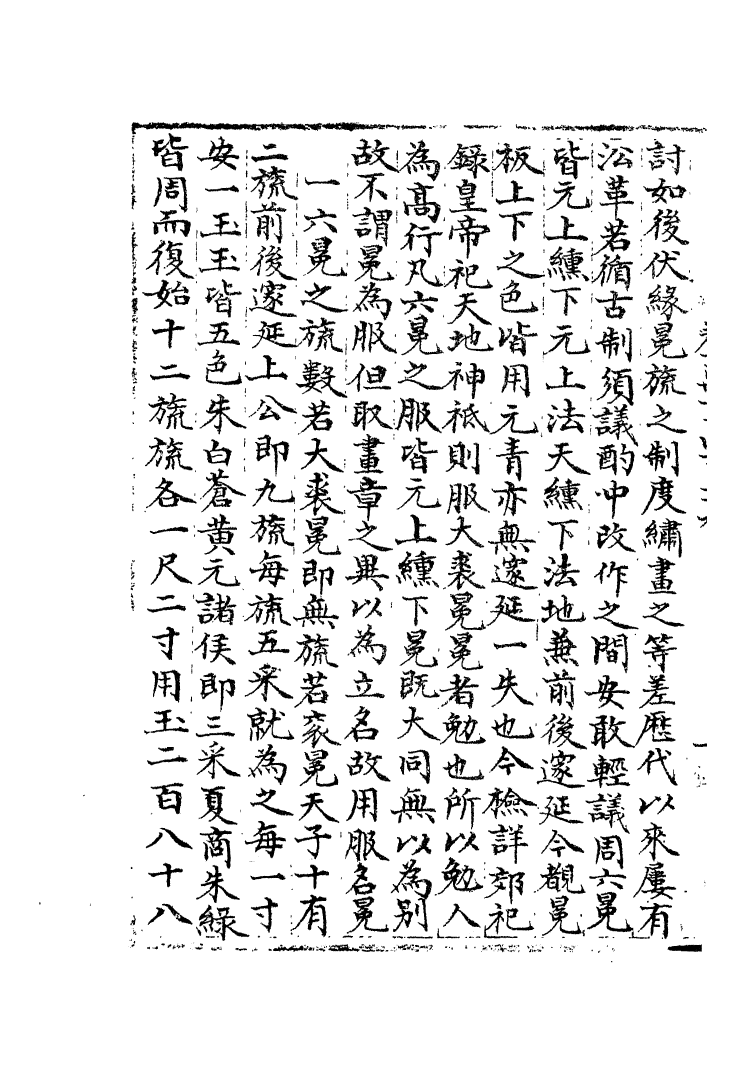 討如後伏緣冕旒之制度繡畫之等差歷代以來屢有
沿革若循古制須議酌中改作之間安敢輕議周六冕
皆元上纁下元上法天纁下法地兼前後邃延今觀冕
板上下之色皆用元青亦無邃延一失也今檢詳郊祀
錄皇帝祀天地神祇則服大裘冕冕者勉也所以勉人
為高行凡六冕之服皆元上纁下冕既大同無以為別
故不謂冕為服但取畫章之異以為立名故用服名冕
一六冕之旒數若大裘冕即無旒若衮冕天子十有
二旒前後邃延上公即九旒每旒五采就為之每一寸
安一玉玉皆五色朱白蒼黃元諸侯即三采夏商朱綠
皆周而復始十二旒旒各一尺二寸用玉二百八十八